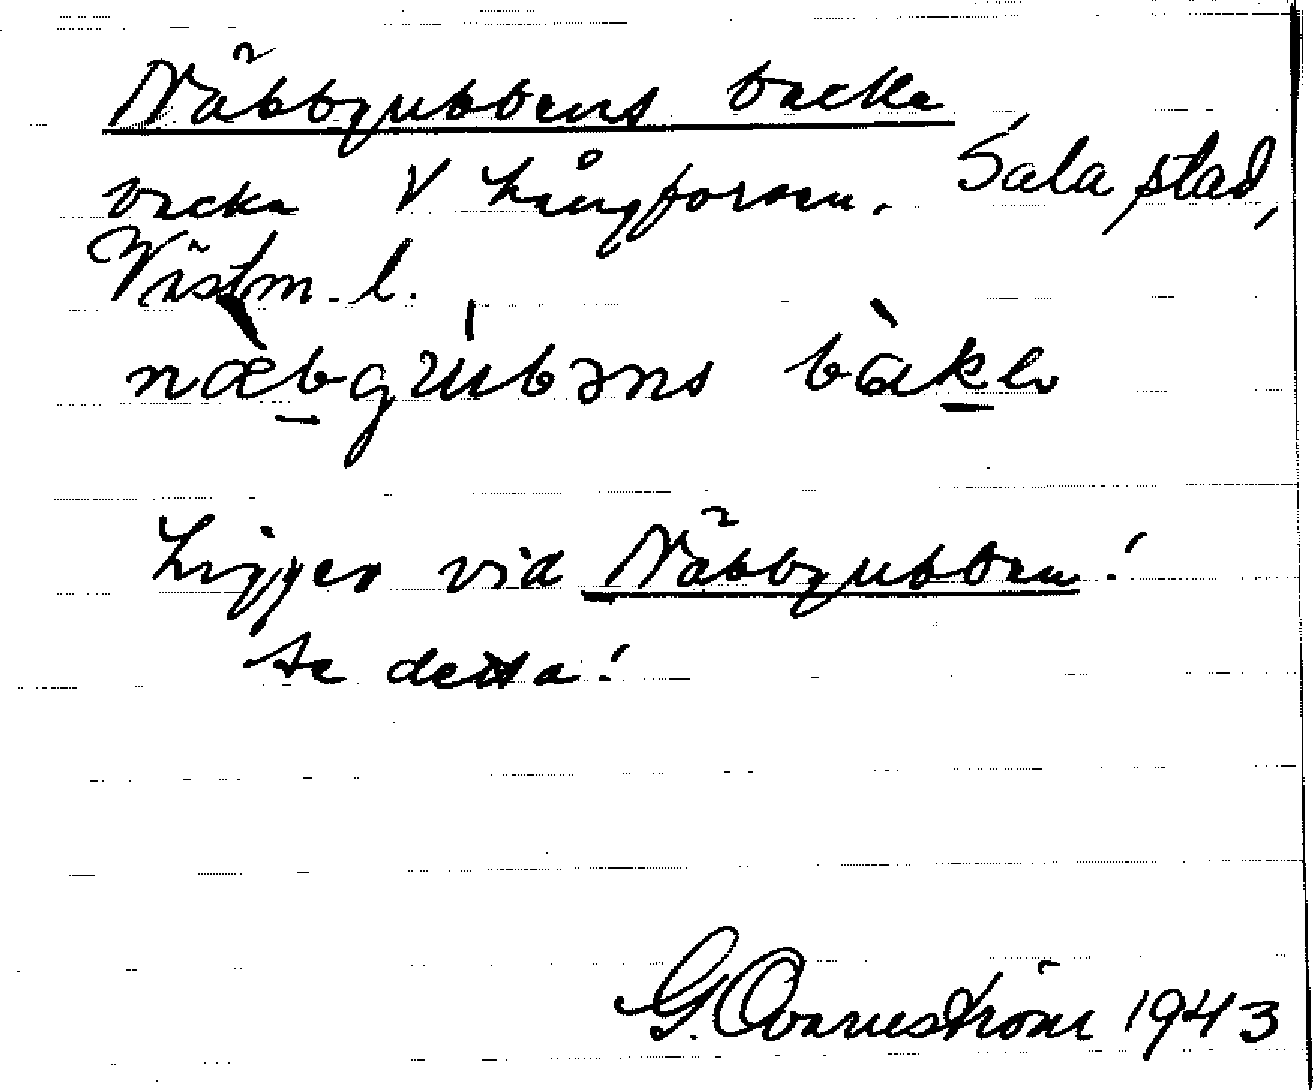 Näbbgubbens backe
backe V Långforsen. Sala stad,
Västm. l.
næ̀bgúbəns bàkɛ
Ligger vid Näbbgubben!
se detta!
G. Ovarneström 1943